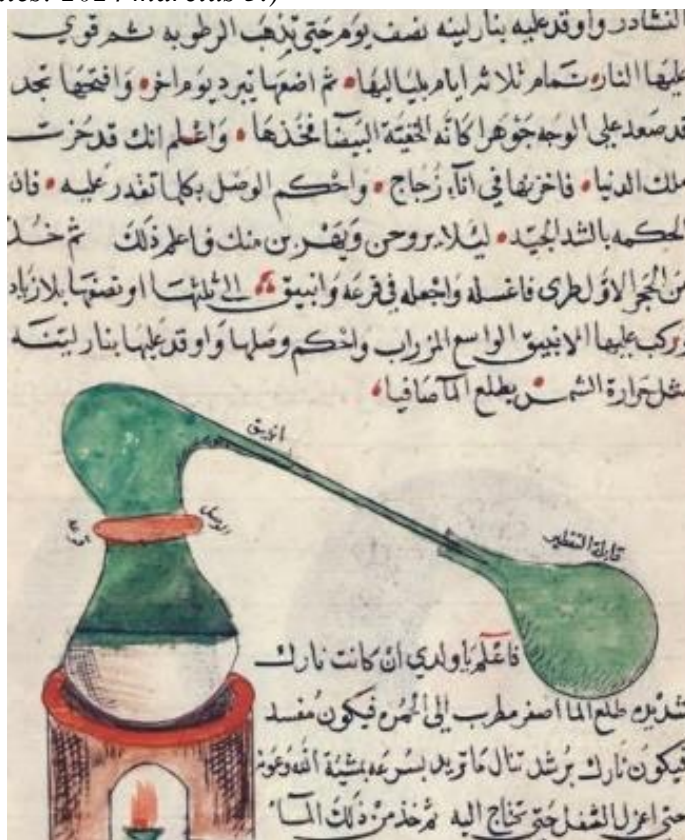 ...tes: 2024 március 5.)
النشادر واوقد عليه بنار لينه نصف يوم حتى يذهب الرطوبه ثم قوي
عليها النار تمام ثلاثه ايام بلياليها ثم اضعها تبرد يوم اخر وافتحها تجد
قد صعد على الوجه جوهرا كانه البيضا فخذها واعلم انك قد حزت
ملك الدنيا فاخزنها في اناء زجاج واحكم الوصل بكلما تقدر عليه فان
الحكمه بالشد الجيد ليلا يروحن ويفرين منك فاعلم ذلك ثم خذ
من الحجر الاول طرى فاغسله واجعله في قرعه وانبيق الى ثلثها او نصفها بلا زياد
وركب عليها الانبيق الواسع المزراب واحكم وصلها واوقد عليها بنار لينه
مثل حرارة الشمس يطلع الما صافيا
انبيق
الوصل
قرعه
قابلة التقطير
فاعلم ياولدي ان كانت نارك
شديده طلع الما اصفر مطرب الى الحمره فيكون مفسد
فيكون نارك برشد تنال ما تريد بسرعه بمشية الله وعونه
حتى اعزل الثفل حتى تحتاج اليه ثم خذ من ذلك الما